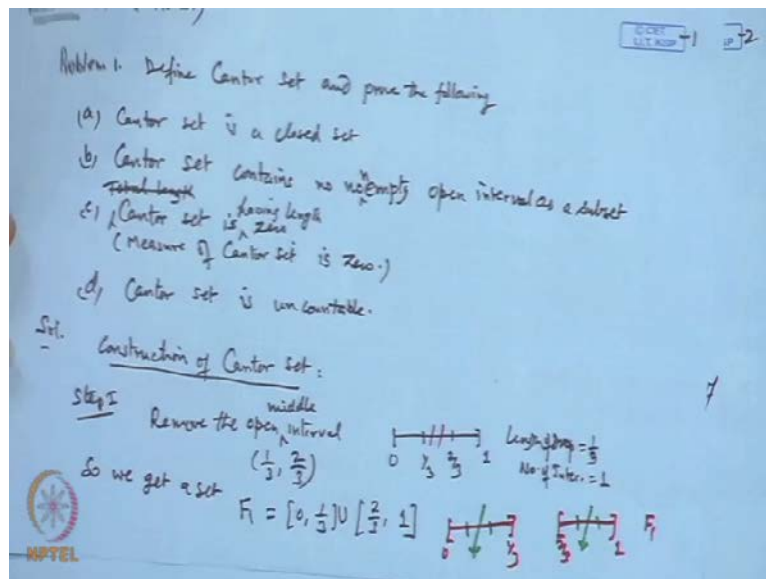 © CET
I.I.T. KGP
-1
-2
Problem 1. Define Cantor set and prove the following
(a) Cantor set is a closed set
(b) Cantor set contains no nonempty open interval as a subset
(c) Cantor set is having length zero
(Measure of Cantor set is zero.)
(d) Cantor set is uncountable.
Sol. Construction of Cantor set:
Step I Remove the open middle interval
(1/3, 2/3)
0 1/3 2/3 1
Length of Drop = 1/3
No. of Inter. = 1
So we get a set
F₁ = [0, 1/3] ∪ [2/3, 1]
0 1/3 2/3 1 F₁
NPTEL